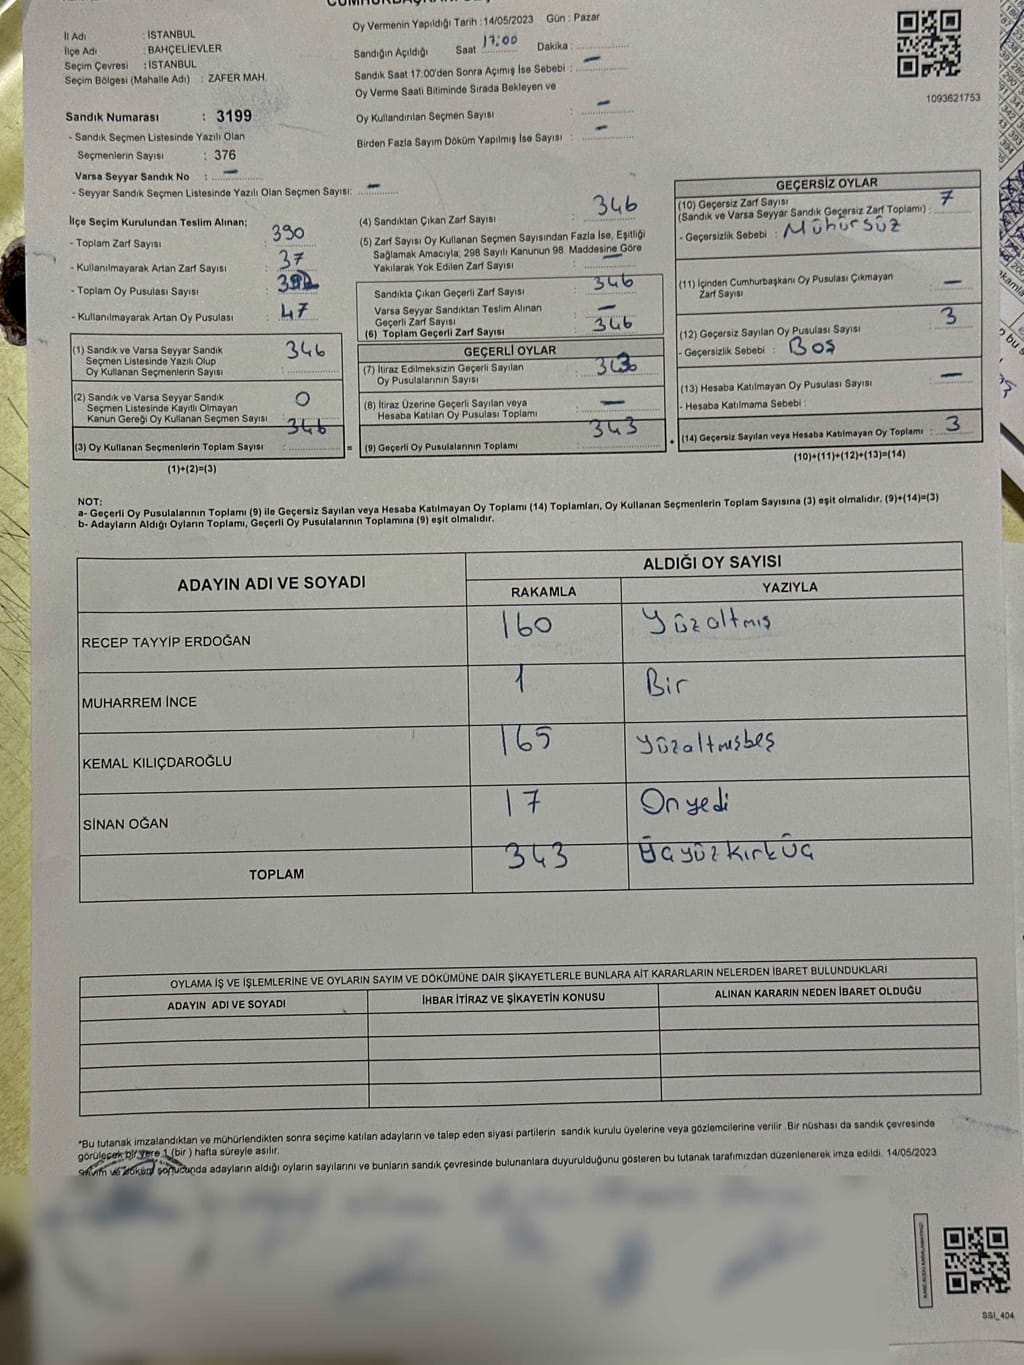 Oy Vermenin Yapıldığı Tarih :14/05/2023 Gün : Pazar
İl Adı : İSTANBUL
İlçe Adı : BAHÇELİEVLER
Seçim Çevresi : İSTANBUL
Seçim Bölgesi (Mahalle Adı) : ZAFER MAH.
Sandığın Açıldığı Saat 17:00 Dakika : —
Sandık Saat 17:00'den Sonra Açımış İse Sebebi : —
Oy Verme Saati Bitiminde Sırada Bekleyen ve
Oy Kullandırılan Seçmen Sayısı : —
Birden Fazla Sayım Döküm Yapılmış İse Sayısı : —
1093621753
Sandık Numarası : 3199
- Sandık Seçmen Listesinde Yazılı Olan
Seçmenlerin Sayısı : 376
Varsa Seyyar Sandık No : —
- Seyyar Sandık Seçmen Listesinde Yazılı Olan Seçmen Sayısı: —
İlçe Seçim Kurulundan Teslim Alınan;
- Toplam Zarf Sayısı : 390
- Kullanılmayarak Artan Zarf Sayısı : 37
- Toplam Oy Pusulası Sayısı :
- Kullanılmayarak Artan Oy Pusulası : 47
(1) Sandık ve Varsa Seyyar Sandık 346
Seçmen Listesinde Yazılı Olup
Oy Kullanan Seçmenlerin Sayısı :
(2) Sandık ve Varsa Seyyar Sandık 0
Seçmen Listesinde Kayıtlı Olmayan
Kanun Gereği Oy Kullanan Seçmen Sayısı :
(3) Oy Kullanan Seçmenlerin Toplam Sayısı : 346
=
(1)+(2)=(3)
(4) Sandıktan Çıkan Zarf Sayısı : 346
(5) Zarf Sayısı Oy Kullanan Seçmen Sayısından Fazla İse, Eşitliği
Sağlamak Amacıyla; 298 Sayılı Kanunun 98. Maddesine Göre
Yakılarak Yok Edilen Zarf Sayısı : —
Sandıkta Çıkan Geçerli Zarf Sayısı : 346
Varsa Seyyar Sandıktan Teslim Alınan
Geçerli Zarf Sayısı : —
(6) Toplam Geçerli Zarf Sayısı : 346
GEÇERLİ OYLAR
(7) İtiraz Edilmeksizin Geçerli Sayılan
Oy Pusulalarının Sayısı : 343
(8) İtiraz Üzerine Geçerli Sayılan veya
Hesaba Katılan Oy Pusulası Toplamı : —
(9) Geçerli Oy Pusulalarının Toplamı : 343
+
GEÇERSİZ OYLAR
(10) Geçersiz Zarf Sayısı
(Sandık ve Varsa Seyyar Sandık Geçersiz Zarf Toplamı) : 7
- Geçersizlik Sebebi : Mühürsüz
(11) İçinden Cumhurbaşkanı Oy Pusulası Çıkmayan
Zarf Sayısı : —
(12) Geçersiz Sayılan Oy Pusulası Sayısı : 3
- Geçersizlik Sebebi : Boş
(13) Hesaba Katılmayan Oy Pusulası Sayısı : —
- Hesaba Katılmama Sebebi :
(14) Geçersiz Sayılan veya Hesaba Katılmayan Oy Toplamı : 3
(10)+(11)+(12)+(13)=(14)
NOT:
a- Geçerli Oy Pusulalarının Toplamı (9) ile Geçersiz Sayılan veya Hesaba Katılmayan Oy Toplamı (14) Toplamları, Oy Kullanan Seçmenlerin Toplam Sayısına (3) eşit olmalıdır. (9)+(14)=(3)
b- Adayların Aldığı Oyların Toplamı, Geçerli Oy Pusulalarının Toplamına (9) eşit olmalıdır.
ADAYIN ADI VE SOYADI
ALDIĞI OY SAYISI
RAKAMLA YAZIYLA
RECEP TAYYİP ERDOĞAN 160 Yüzaltmış
MUHARREM İNCE 1 Bir
KEMAL KILIÇDAROĞLU 165 Yüzaltmışbeş
SİNAN OĞAN 17 Onyedi
TOPLAM 343 Üçyüzkırküç
OYLAMA İŞ VE İŞLEMLERİNE VE OYLARIN SAYIM VE DÖKÜMÜNE DAİR ŞİKAYETLERLE BUNLARA AİT KARARLARIN NELERDEN İBARET BULUNDUKLARI
ADAYIN ADI VE SOYADI İHBAR İTİRAZ VE ŞİKAYETİN KONUSU ALINAN KARARIN NEDEN İBARET OLDUĞU
*Bu tutanak imzalandıktan ve mühürlendikten sonra seçime katılan adayların ve talep eden siyasi partilerin sandık kurulu üyelerine veya gözlemcilerine verilir .Bir nüshası da sandık çevresinde
görülecek bir yere 1 (bir ) hafta süreyle asılır.
Sayım ve döküm sonucunda adayların aldığı oyların sayılarını ve bunların sandık çevresinde bulunanlara duyurulduğunu gösteren bu tutanak tarafımızdan düzenlenerek imza edildi. 14/05/2023
SSI_404